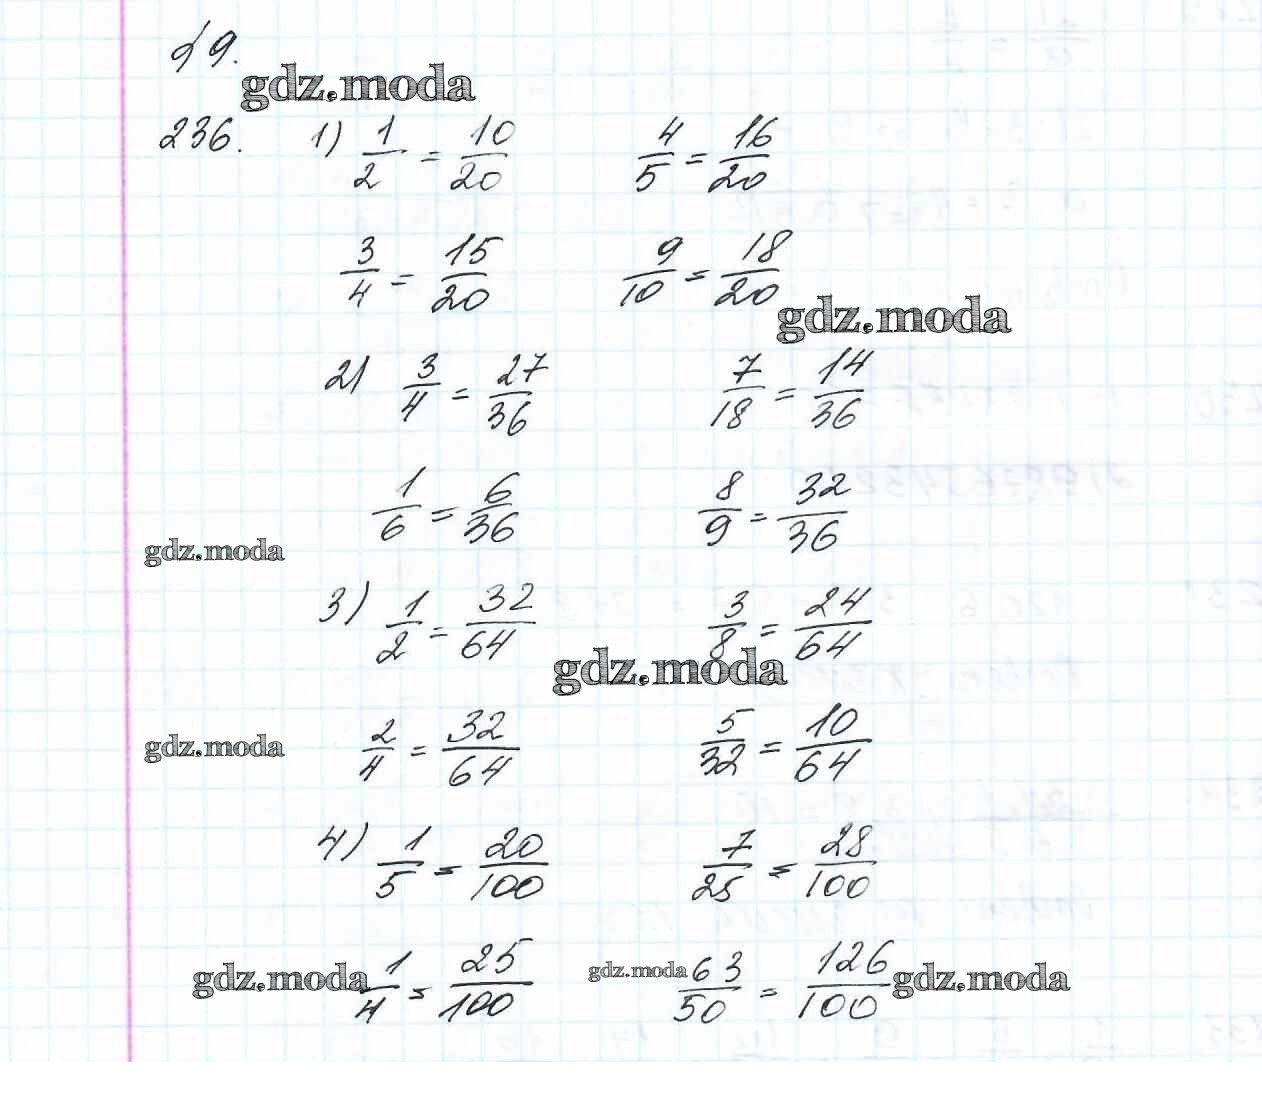 §9.
gdz.moda
236. 1) 1/2 = 10/20 4/5 = 16/20
3/4 = 15/20 9/10 = 18/20
gdz.moda
2) 3/4 = 27/36 7/18 = 14/36
1/6 = 6/36 8/9 = 32/36
gdz.moda
3) 1/2 = 32/64 3/8 = 24/64
gdz.moda
gdz.moda
2/4 = 32/64 5/32 = 10/64
4) 1/5 = 20/100 7/25 = 28/100
gdz.moda 1/4 = 25/100 gdz.moda 63/50 = 126/100 gdz.moda